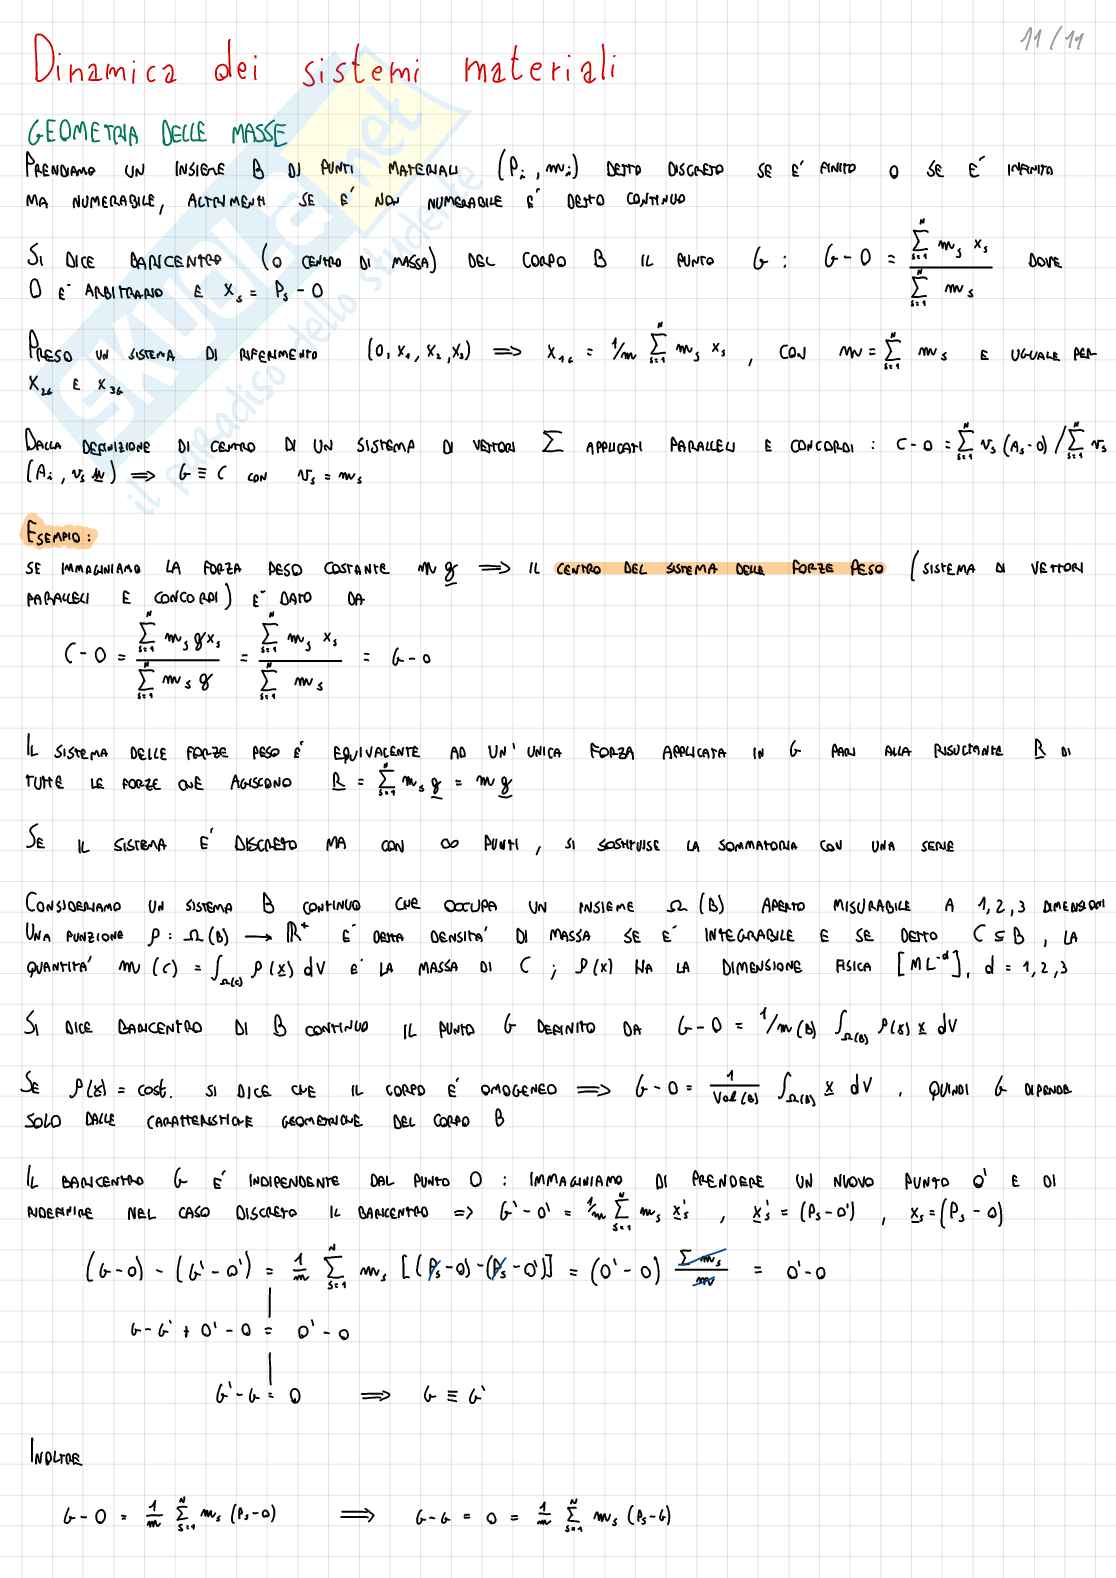 11/11
Dinamica dei sistemi materiali
GEOMETRIA DELLE MASSE
PRENDIAMO UN INSIEME B DI PUNTI MATERIALI (Pᵢ, mᵢ) DETTO DISCRETO SE E' FINITO O SE E' INFINITO
MA NUMERABILE, ALTRIMENTI SE E' NON NUMERABILE E' DETTO CONTINUO
SI DICE BARICENTRO (O CENTRO DI MASSA) DEL CORPO B IL PUNTO G: G-O = \frac{\sum_{s=1}^{N} m_s x_s}{\sum_{s=1}^{N} m_s} DOVE
O E' ARBITRARIO E x_s = P_s - O
PRESO UN SISTEMA DI RIFERIMENTO (O, x₁, x₂, x₃) ⟹ x_{1G} = 1/m \sum_{s=1}^{N} m_s x_s, CON m = \sum_{s=1}^{N} m_s E UGUALE PER
x_{2G} E x_{3G}
DALLA DEFINIZIONE DI CENTRO DI UN SISTEMA DI VETTORI Σ APPLICATI PARALLELI E CONCORDI: C-O = \sum_{s=1}^{N} v_s (A_s-O) / \sum_{s=1}^{N} v_s
(Aᵢ, v_s u) ⟹ G ≡ C CON v_s = m_s
ESEMPIO:
SE IMMAGINIAMO LA FORZA PESO COSTANTE m g ⟹ IL CENTRO DEL SISTEMA DELLE FORZE PESO (SISTEMA DI VETTORI
PARALLELI E CONCORDI) E' DATO DA
C-O = \frac{\sum_{s=1}^{N} m_s g x_s}{\sum_{s=1}^{N} m_s g} = \frac{\sum_{s=1}^{N} m_s x_s}{\sum_{s=1}^{N} m_s} = G-O
IL SISTEMA DELLE FORZE PESO E' EQUIVALENTE AD UN'UNICA FORZA APPLICATA IN G PARI ALLA RISULTANTE R DI
TUTTE LE FORZE CHE AGISCONO R = \sum_{s=1}^{N} m_s g = m g
SE IL SISTEMA E' DISCRETO MA CON ∞ PUNTI, SI SOSTITUISCE LA SOMMATORIA CON UNA SERIE
CONSIDERIAMO UN SISTEMA B CONTINUO CHE OCCUPA UN INSIEME Ω(B) APERTO MISURABILE A 1,2,3 DIMENSIONI
UNA FUNZIONE ρ: Ω(B) → ℝ⁺ E' DETTA DENSITA' DI MASSA SE E' INTEGRABILE E SE DETTO C ⊆ B, LA
QUANTITA' m(C) = ∫_{Ω(C)} ρ(x) dV E' LA MASSA DI C; ρ(x) HA LA DIMENSIONE FISICA [ML^{-d}], d = 1,2,3
SI DICE BARICENTRO DI B CONTINUO IL PUNTO G DEFINITO DA G-O = 1/m(B) ∫_{Ω(B)} ρ(x) x dV
SE ρ(x) = cost. SI DICE CHE IL CORPO E' OMOGENEO ⟹ G-O = \frac{1}{Vol(B)} ∫_{Ω(B)} x dV, QUINDI G DIPENDE
SOLO DALLE CARATTERISTICHE GEOMETRICHE DEL CORPO B
IL BARICENTRO G E' INDIPENDENTE DAL PUNTO O: IMMAGINIAMO DI PRENDERE UN NUOVO PUNTO O' E DI
RIDEFINIRE NEL CASO DISCRETO IL BARICENTRO => G'-O' = 1/m \sum_{s=1}^{N} m_s x'_s, x'_s = (P_s-O'), x_s = (P_s-O)
(G-O) - (G'-O') = \frac{1}{m} \sum_{s=1}^{N} m_s [(P_s-O)-(P_s-O')] = (O'-O) \frac{\sum m_s}{m} = O'-O
G-G'+O'-O = O'-O
G'-G = 0 ⟹ G ≡ G'
INOLTRE
G-O = \frac{1}{m} \sum_{s=1}^{N} m_s (P_s-O) ⟹ G-G = 0 = \frac{1}{m} \sum_{s=1}^{N} m_s (P_s-G)
SKUOLA.net
il paradiso dello studente